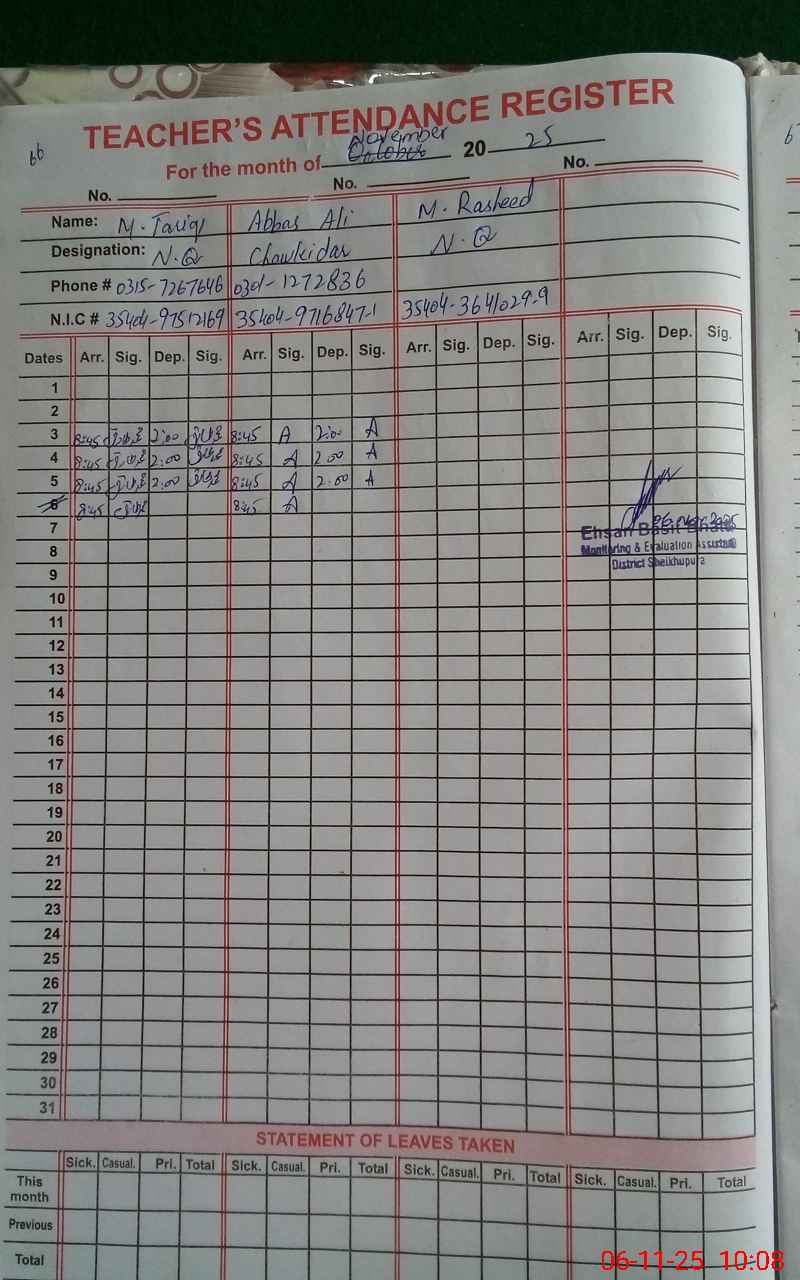 TEACHER'S ATTENDANCE REGISTER
66
For the month of November October 20 25
No. No. No.
Name: M. Tariq Abbas Ali M. Rasheed
Designation: N.Q Chowkidar N.Q
Phone # 0315-7267646 0301-1272836
N.I.C # 35404-97512169 35404-9716847-1 35404-3641029-9
Dates Arr. Sig. Dep. Sig. Arr. Sig. Dep. Sig. Arr. Sig. Dep. Sig. Arr. Sig. Dep. Sig.
1
2
3 8:45 2:00 8:45 A 2:00 A
4 8:45 2:00 8:45 A 2:00 A
5 8:45 2:00 8:45 A 2:00 A
6 8:45 8:45 A
7
Ehsan Basit
8
Monitoring & Evaluation Assistant
District Sheikhupura
9
10
11
12
13
14
15
16
17
18
19
20
21
22
23
24
25
26
27
28
29
30
31
STATEMENT OF LEAVES TAKEN
Sick. Casual. Pri. Total Sick. Casual. Pri. Total Sick. Casual. Pri. Total Sick. Casual. Pri. Total
This month
Previous
Total
06-11-25 10:08